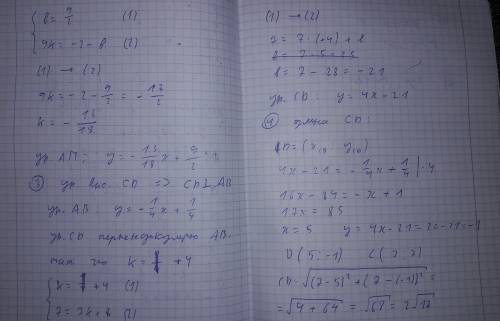 b = 9/2 (1)
9k = -2 - b (2)
(1) → (2)
9k = -2 - 9/2 = -13/2
k = -13/18
ур. АМ: y = -13/18 x + 9/2
③ ур. выс. CD => CD⊥AB
ур. AB: y = -1/4 x + 1/4
ур. CD перпендикулярно AB.
k = +4
k = +4 (1)
7 = 7k + b (2)
(1) → (2)
7 = 7 · (+4) + b
b = 7 - 28 = -21
ур. CD: y = 4x - 21
④ длина CD:
4x - 21 = -1/4 x + 1/4 | · 4
16x - 84 = -x + 1
17x = 85
x = 5 y = 4x - 21 = 20 - 21 = -1
D(5; -1) C(7; 7)
CD = √((7-5)² + (7-(-1))²) =
= √(4 + 64) = √68 = 2√17